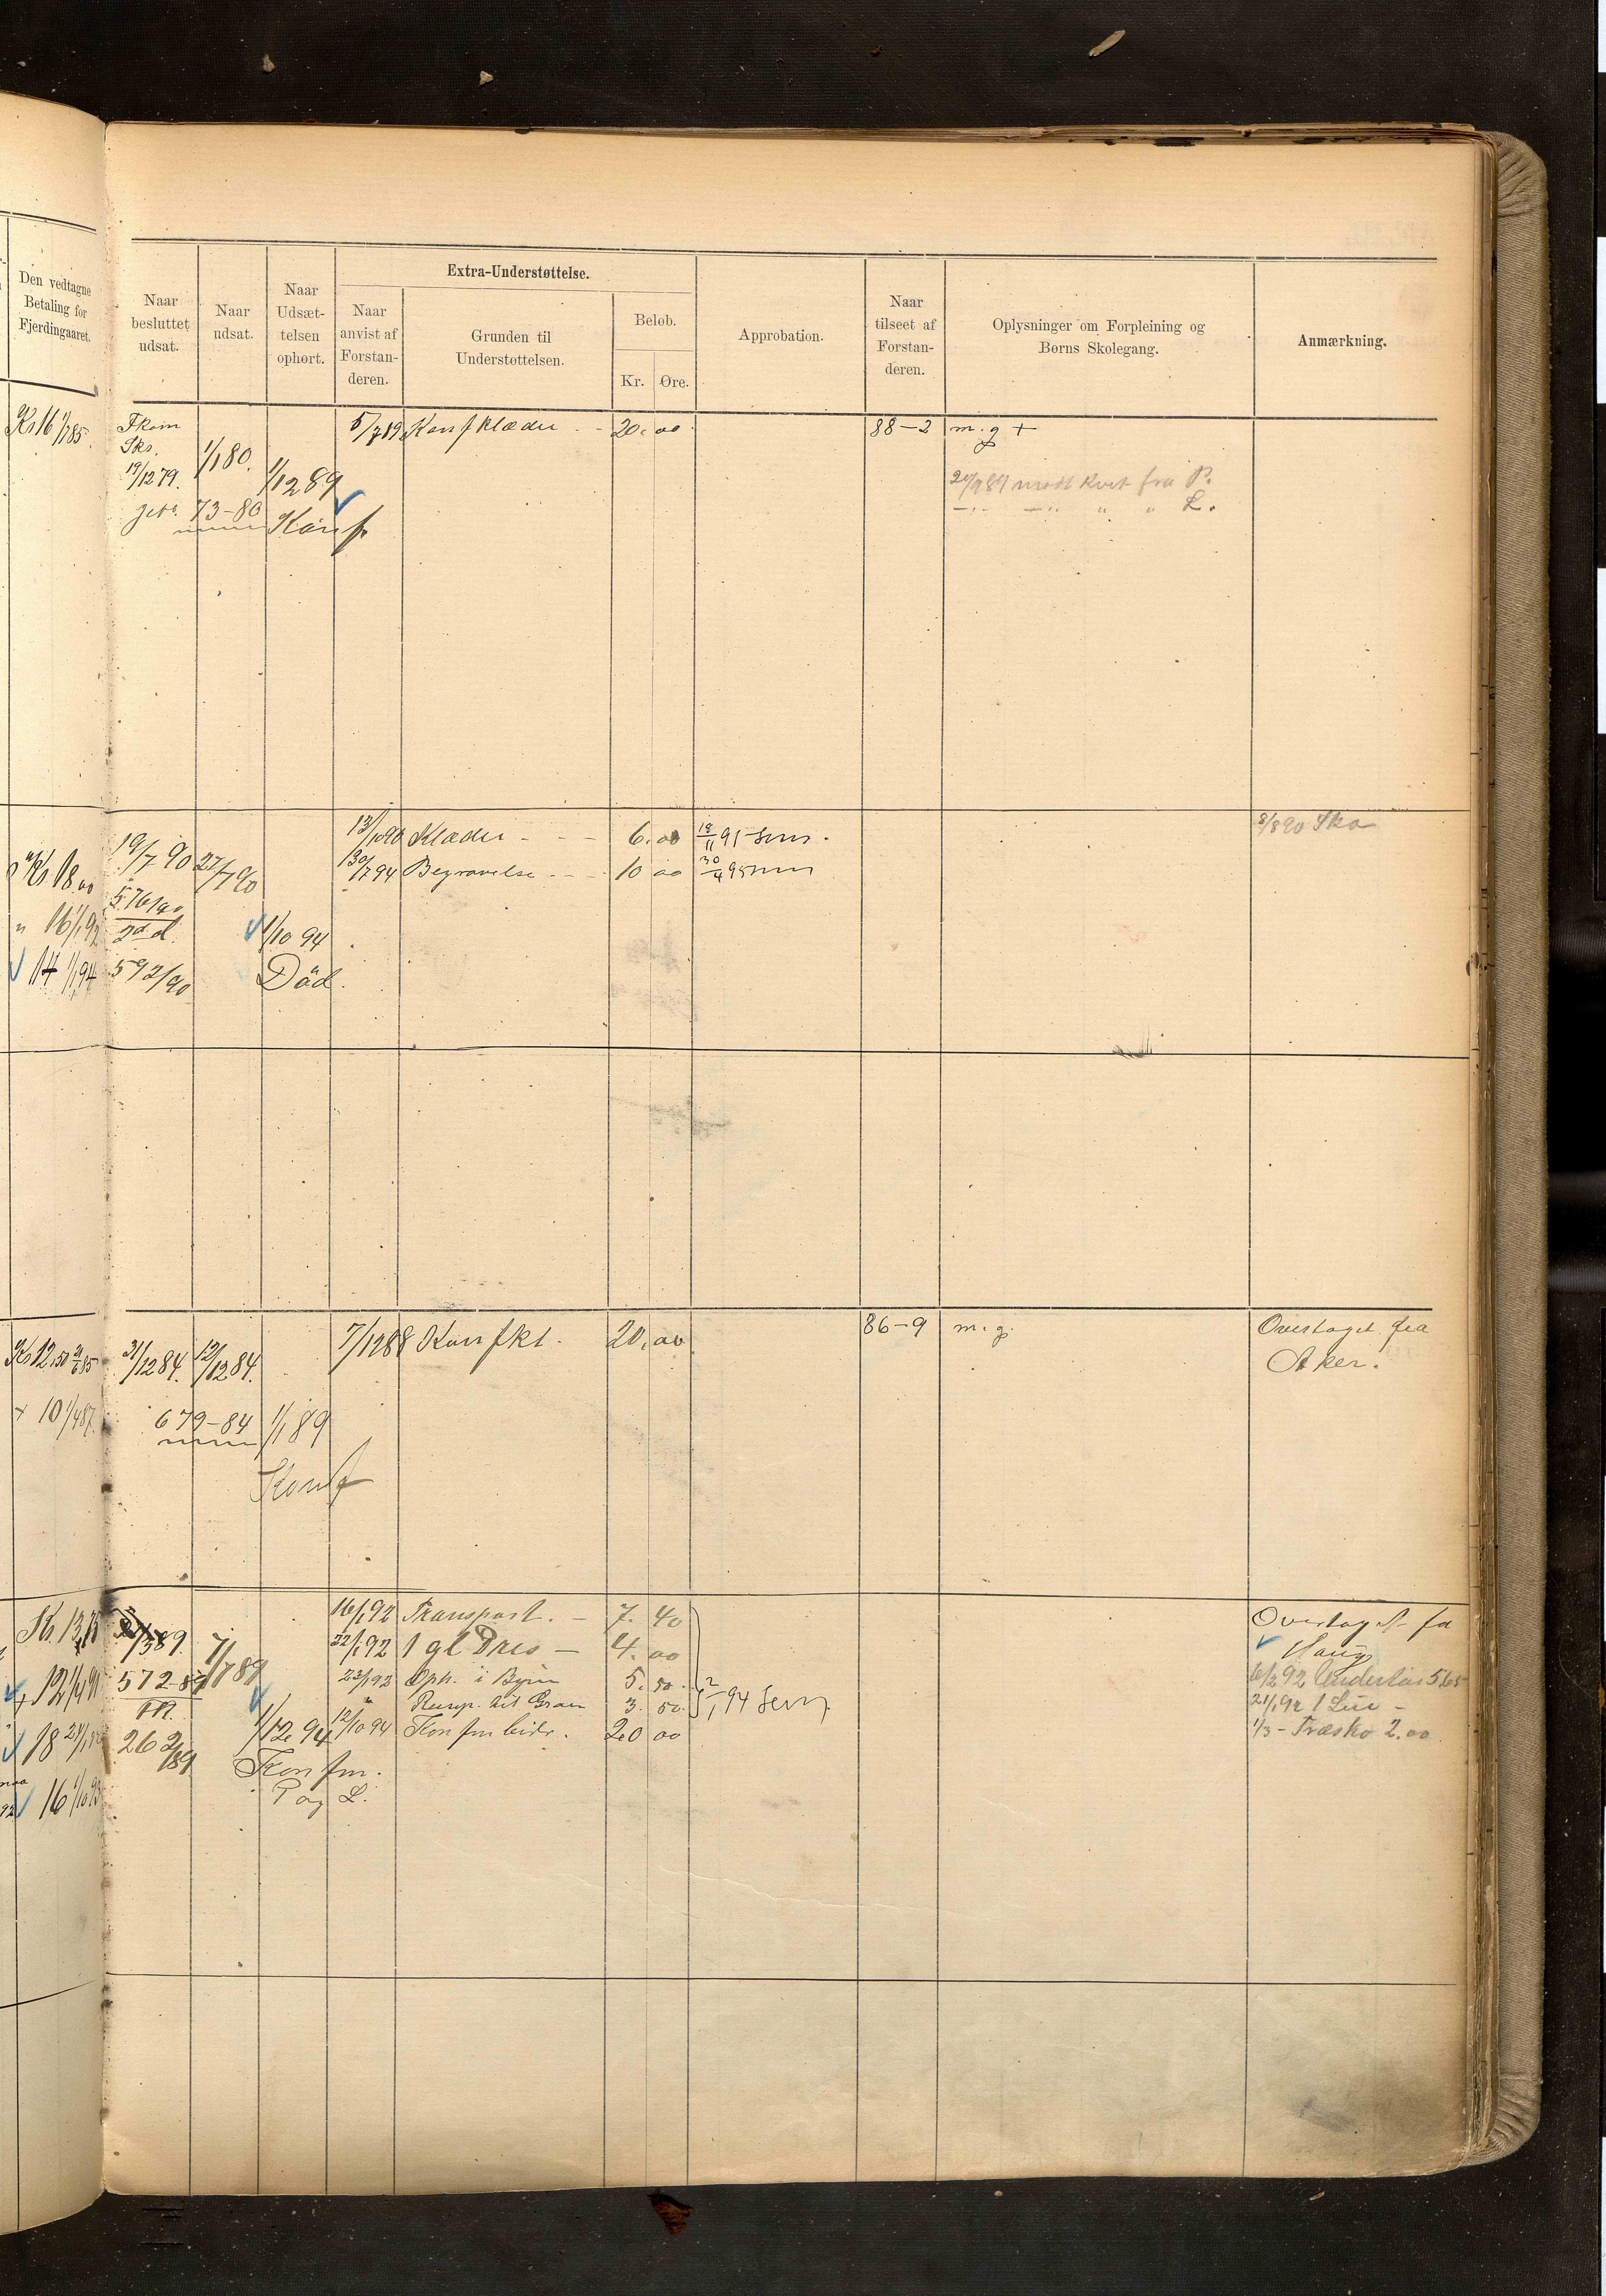 Den vedtagne
Betaling for
Fjerdingaaret.
Naar
besluttet
udsat.
Naar
udsat.
Naar
Udsæt-
telsen
ophørt.
Extra-Understøttelse.
Naar
anvist af
Forstan-
deren.
Grunden til
Understøttelsen.
Beløb.
Kr. Øre.
Approbation.
Naar
tilseet af
Forstan-
deren.
Oplysninger om Forpleining og
Børns Skolegang.
Anmærkning.
Kr 16 1/1 85.
Fkom
Sks.
19/12 79.
73-80
1/1 80.
1/12 89
Konf
5/7 89 Konfklæder - 20.00
88-2 m.g +
20/9 89 modt Kvit fra P.
" " L.
Kr 18.00
" 16 1/1 92
14 1/1 94
19/7 90
576/90
592/90
22/7 90
1/10 94
Död.
13/10 90 Klæder - - - 6.00 18/11 91
7 94 Begravelse - - - 10 00 30/4 95
8/8 90 Sko
Kr 12,50
+ 10 1/4 87.
31/12 84. 12/12 84.
679-84 1/1 89
Konf
7/12 88 Konfkl. 20.00
86-9 m.g.
Overtaget fra
Aker.
Kr. 13,75
12 1/4 91
18
16 1/10 93
572-89
262/89
7/7 89
1/12 94
Konfm.
P og L.
16/1 92 Transport. - 7. 40
22/1 92 1 gl Dres - 4. 00
23/1 92 Oph. i Byen 5. 50.
" til Gran 3. 50.
12/10 94 Konfm bidr. 20 00
Overtaget fra
Haug
6/2 92 5.65
21/1 92 1 Lue -
1/3 - Træsko 2.00